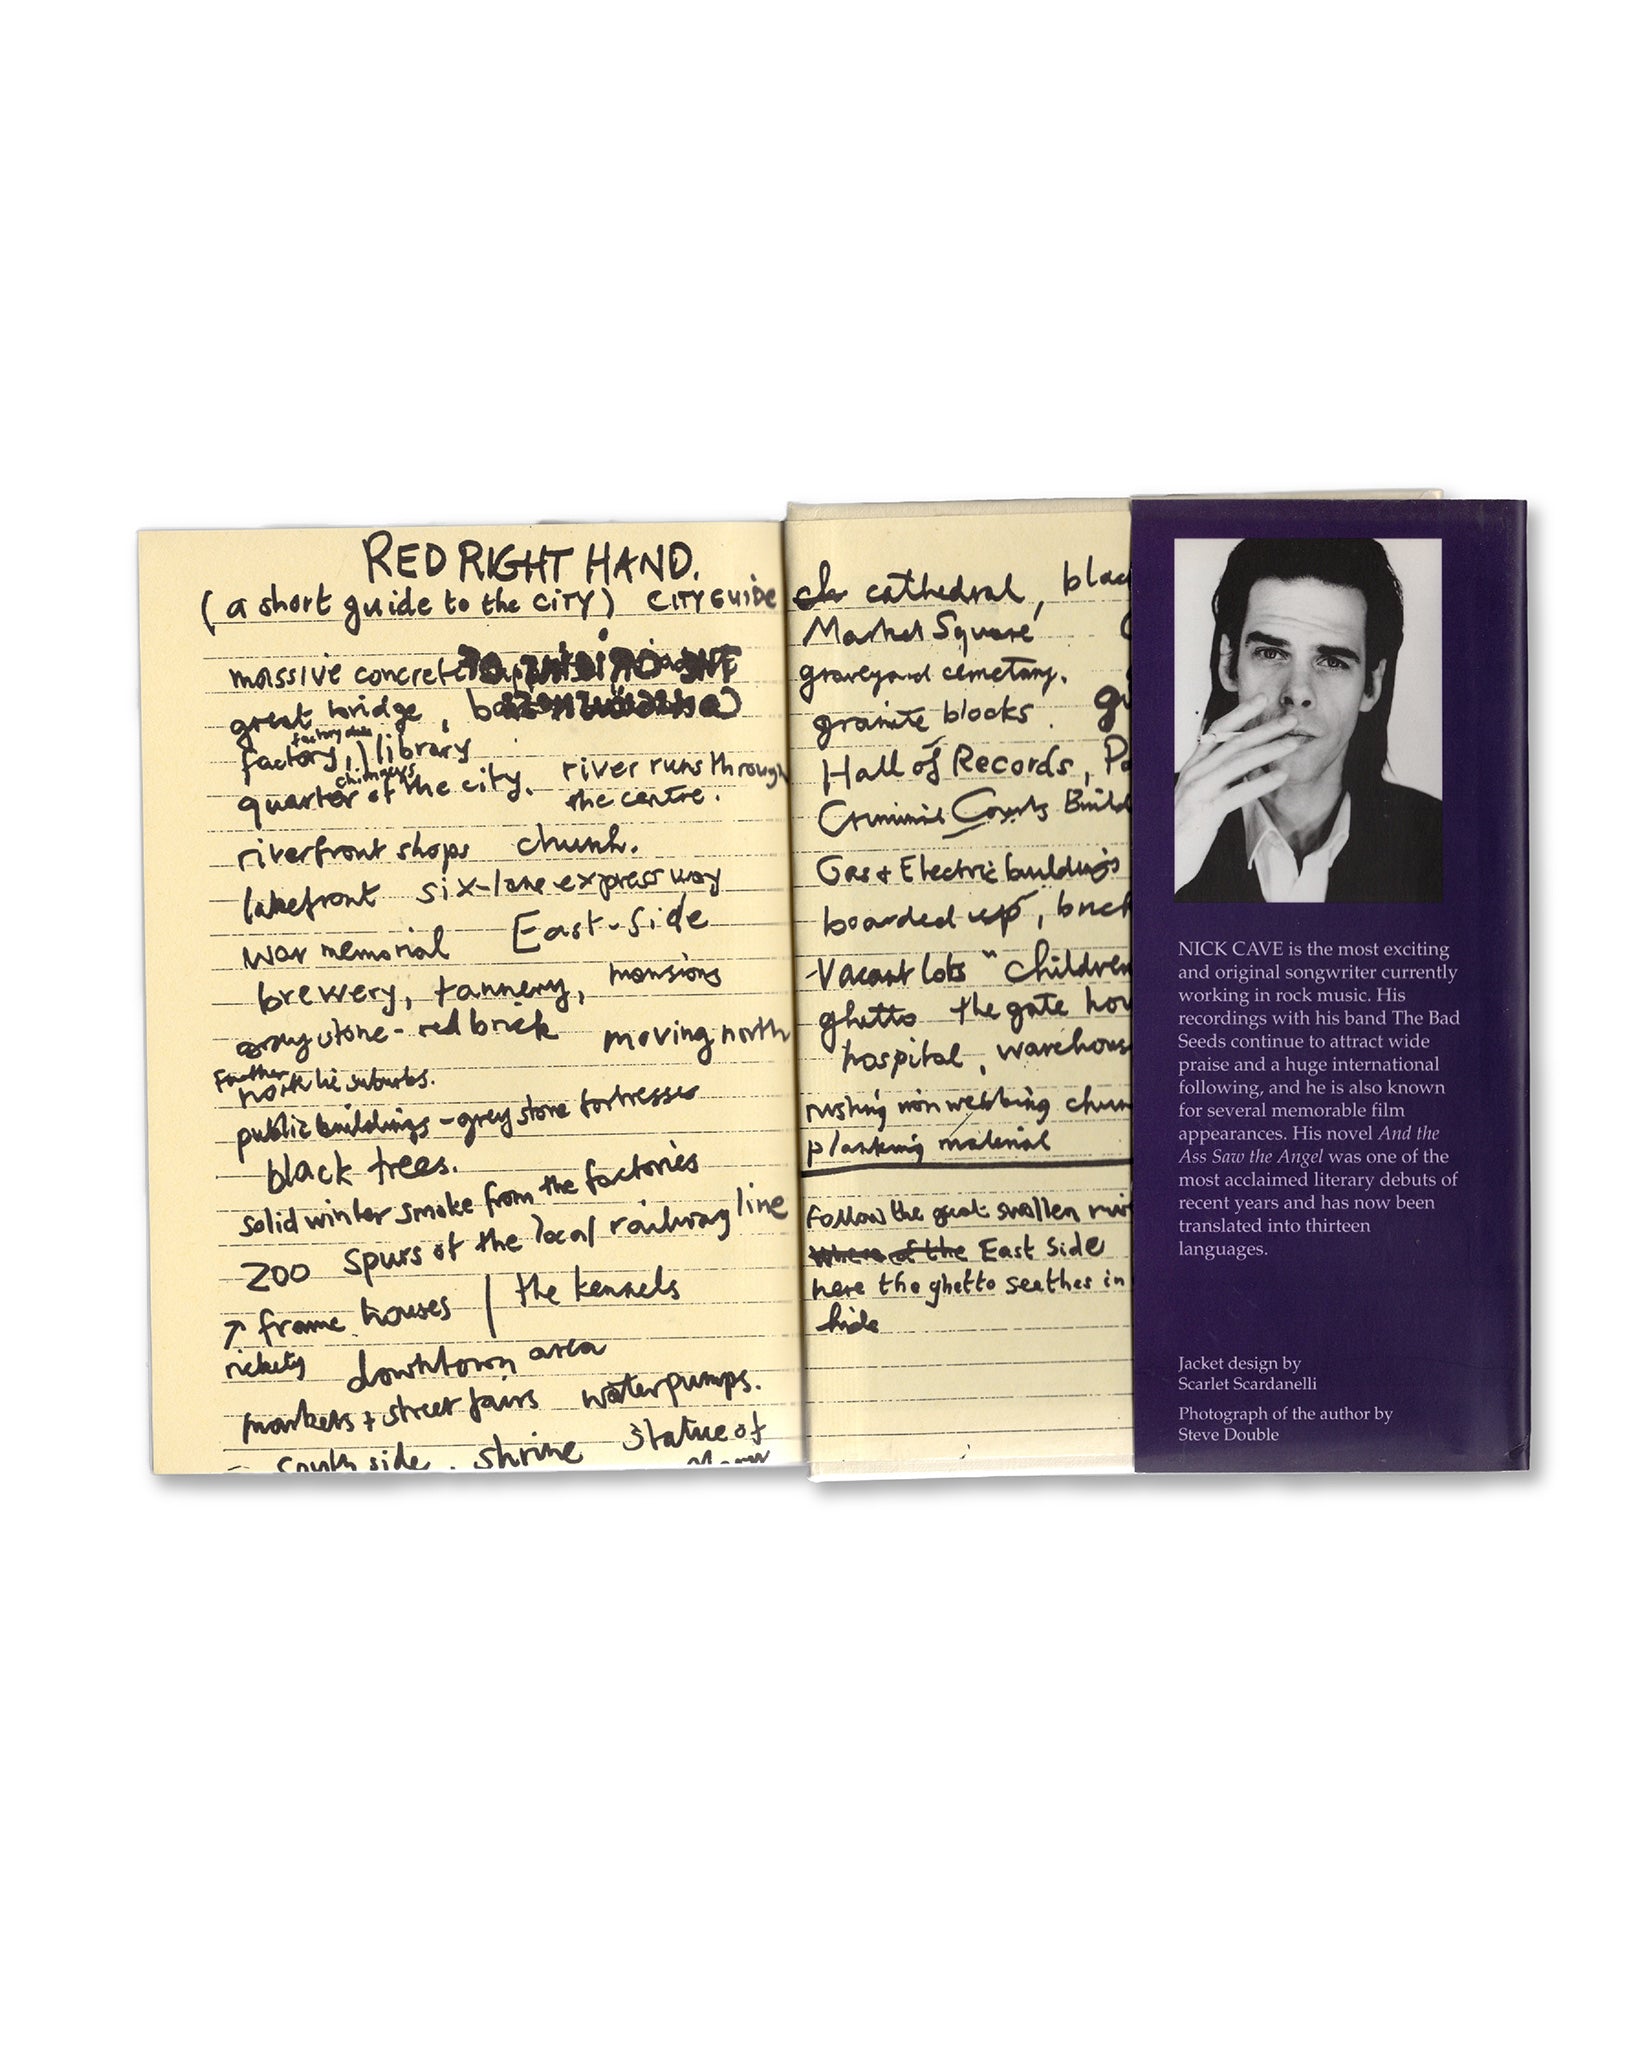 RED RIGHT HAND.
(a short guide to the CITY) CITY GUIDE
massive concrete
great bridge,
factory, library
chimneys
quarter of the city. river runs through
the centre.
riverfront shops church.
lakefront six-lane expressway
war memorial East-Side
brewery, tannery, mansions
gray stone - red brick moving north
Further
north lie suburbs.
public buildings - grey stone fortresses
black trees.
solid winter smoke from the factories
ZOO spurs of the local railway line
frame houses | the kennels
rickety downtown area
markets + street fairs waterpumps.
South side. shrine statue of
cathedral, blac
Market Square
graveyard cemetary.
granite blocks. gr
Hall of Records, Po
Criminal Courts Build
Gas + Electric buildings
boarded up, brick
-Vacant lots "children
ghetto the gate hou
hospital, warehous
planking material
Follow the great swollen riv
Where of the East Side
here the ghetto seethes in
hide
NICK CAVE is the most exciting
and original songwriter currently
working in rock music. His
recordings with his band The Bad
Seeds continue to attract wide
praise and a huge international
following, and he is also known
for several memorable film
appearances. His novel And the
Ass Saw the Angel was one of the
most acclaimed literary debuts of
recent years and has now been
translated into thirteen
languages.
Jacket design by
Scarlet Scardanelli
Photograph of the author by
Steve Double